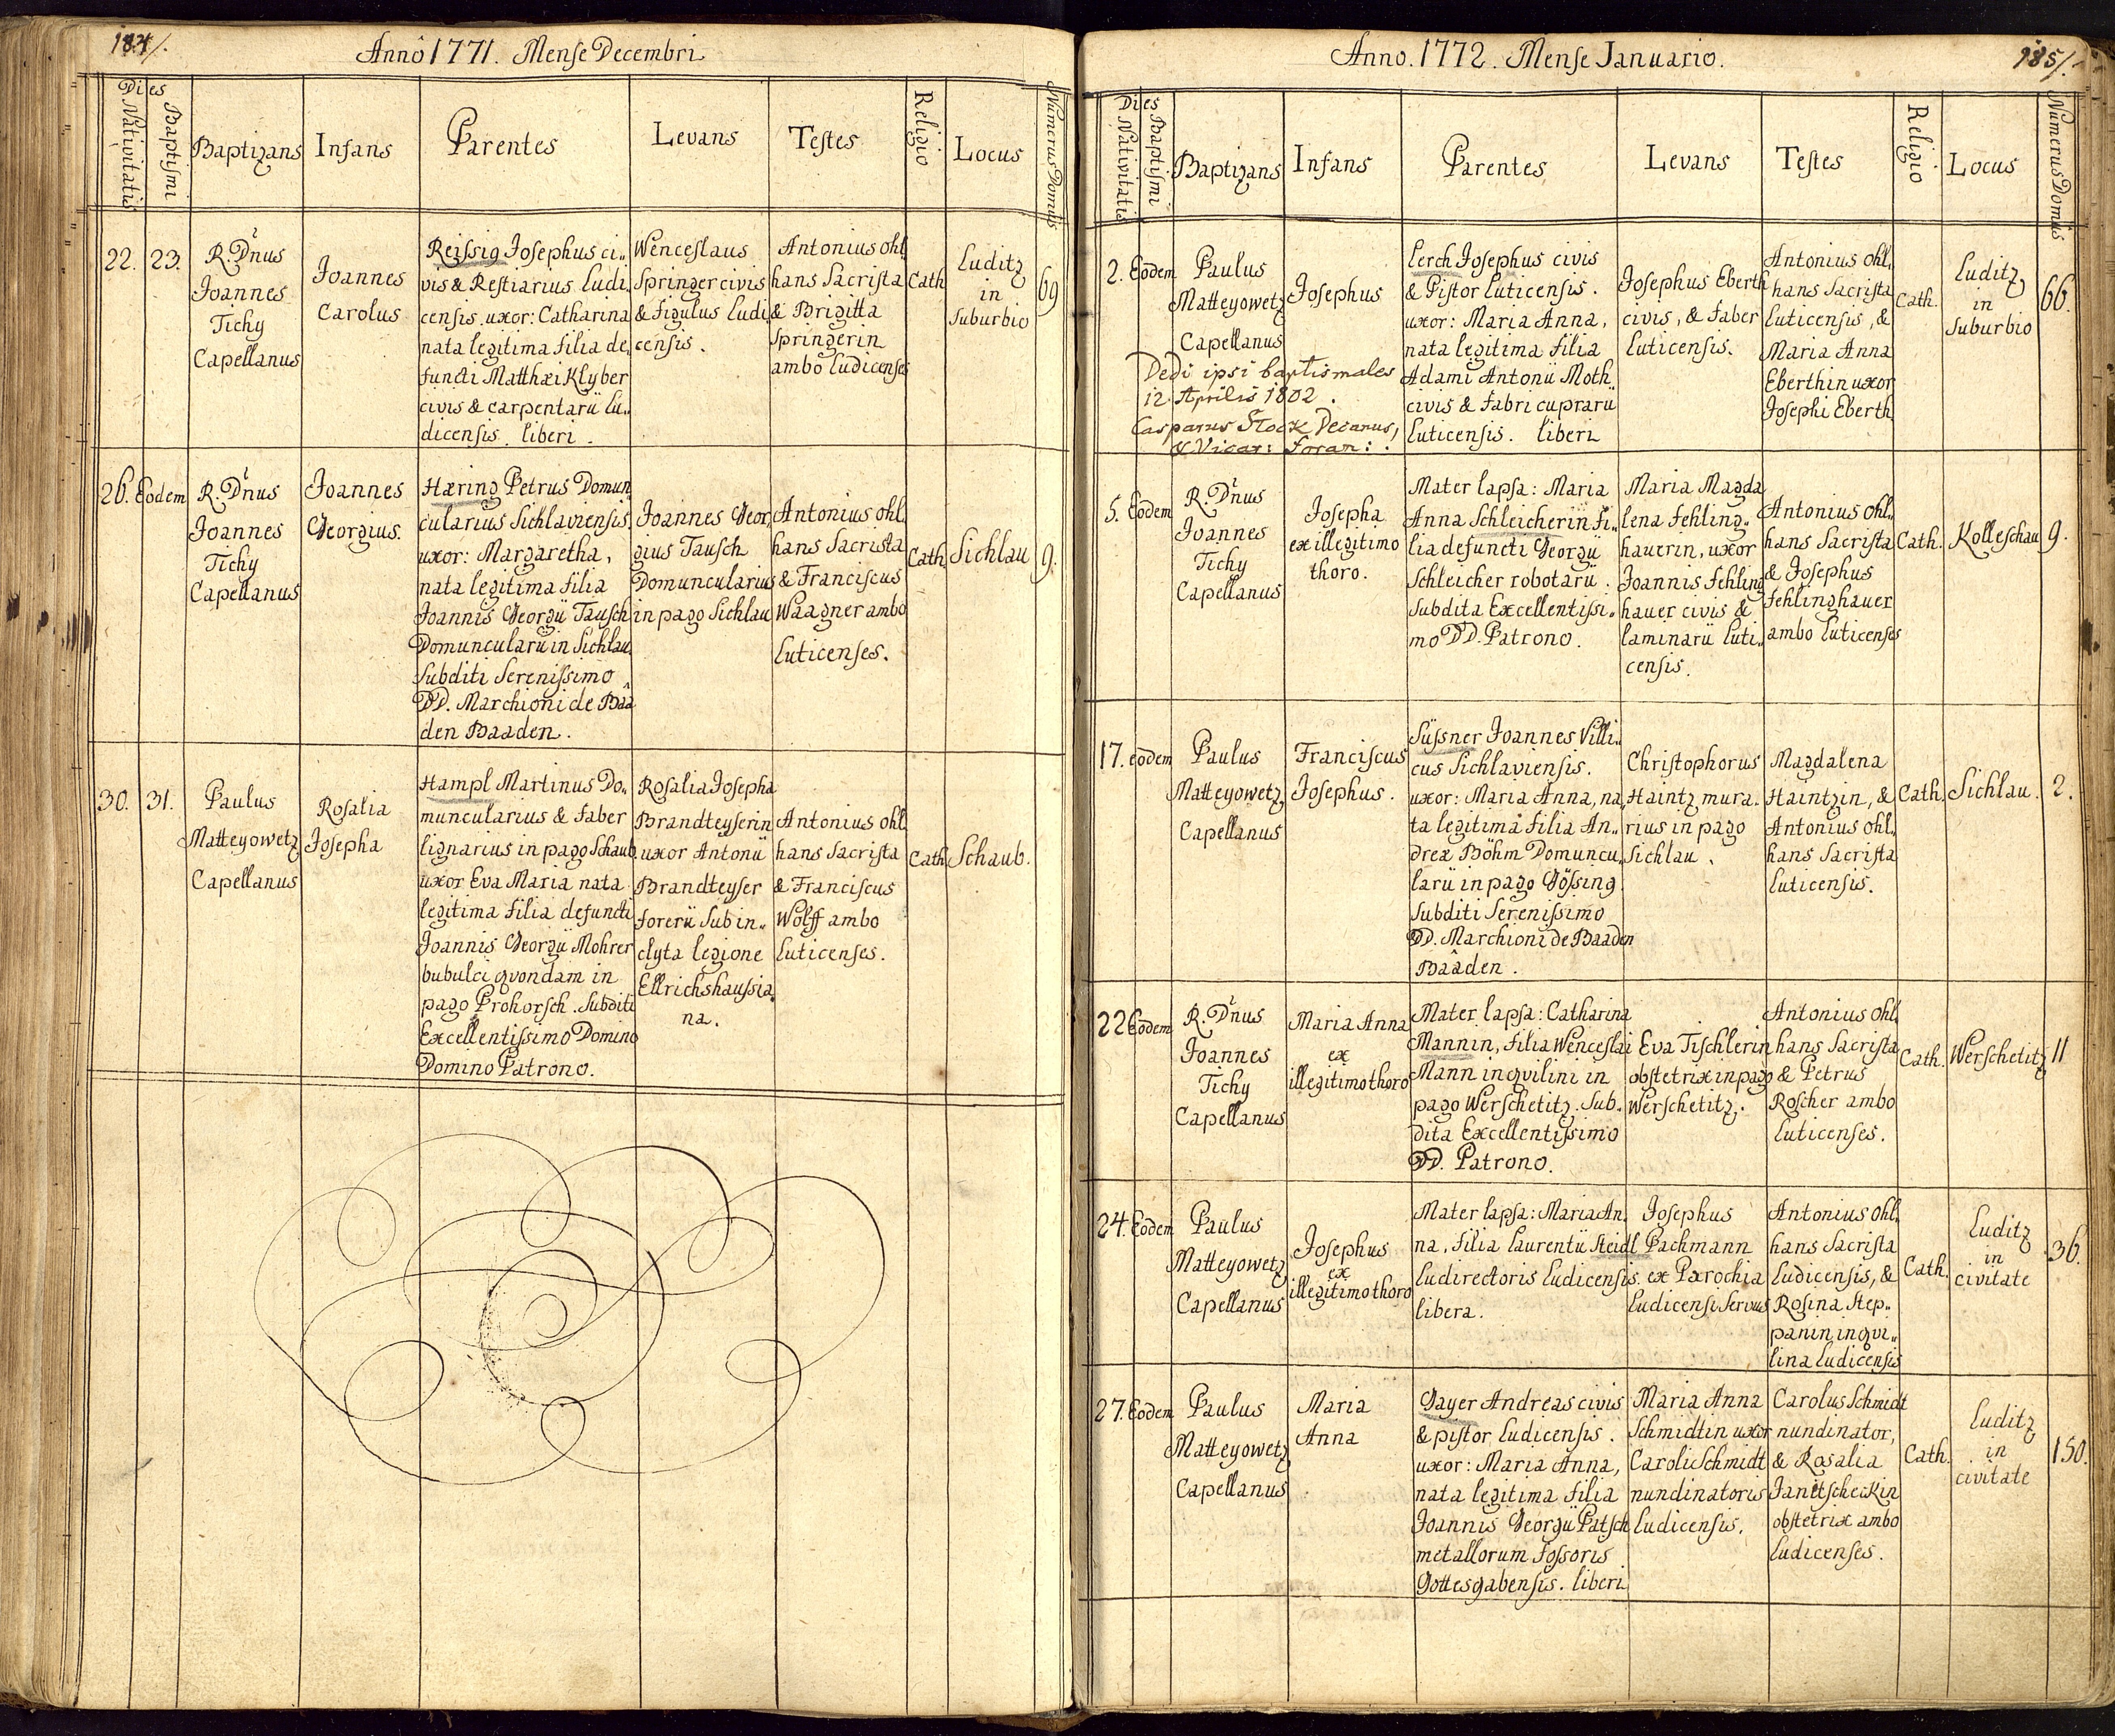 184/.
Anno 1771. Mense Decembri
Dies
Nativitatis
Baptismi
Baptizans
Infans
Parentes
Levans
Testes
Religio
Locus
Numerus Domus
22.
23.
R. Dnus
Joannes
Tichy
Capellanus
Joannes
Carolus
Reissig Josephus ci„
vis & Restiarius Ludi„
censis. uxor: Catharina
nata legitima filia de„
functi Matthæi Klyber
civis & carpentarii Lu„
dicensis. liberi.
Wenceslaus
Springer civis
& figulus Ludi„
censis.
Antonius Ohl„
hans Sacrista
& Brigitta
Springerin
ambo Ludicenses
Cath.
Luditz
in
Suburbio
69
26.
Eodem
R. Dnus
Joannes
Tichy
Capellanus
Joannes
Georgius.
Hæring Petrus Domun„
cularius Sichlaviensis,
uxor: Margaretha,
nata legitima filia
Joannis Georgii Tausch
Domuncularii in Sichlau
Subditi Serenissimo
DD. Marchioni de Baa„
den Baaden.
Joannes Geor„
gius Tausch
Domuncularius
in pago Sichlau
Antonius Ohl„
hans Sacrista
& Franciscus
Waagner ambo
Luticenses.
Cath.
Sichlau
9.
30.
31.
Paulus
Matteyowetz
Capellanus
Rosalia
Josepha
Hampl Martinus Do„
muncularius & faber
lignarius in pago Schaub.
uxor Eva Maria nata
legitima filia defuncti
Joannis Georgii Mohrer
bubulci qvondam in
pago Prohorsch. Subditi
Excellentissimo Domino
Domino Patrono.
Rosalia Josepha
Brandteyserin
uxor Antonii
Brandteyser
forerii Sub in„
clyta legione
Ellrichshaussia„
na.
Antonius Ohl„
hans Sacrista
& Franciscus
Wolff ambo
Luticenses.
Cath.
Schaub.
185/.
Anno. 1772. Mense Januario.
Dies
Nativitatis
Baptismi
Baptizans
Infans
Parentes
Levans
Testes
Religio
Locus
Numerus Domus
2.
Eodem
Paulus
Matteyowetz
Capellanus
Dedi ipsi baptismales
12. Aprilis 1802.
Casparus Stock Decanus,
& Vicar: Foran:
Josephus
Lerch Josephus civis
& Pistor Luticensis.
uxor: Maria Anna,
nata legitima filia
Adami Antonii Moth
civis & fabri cuprarii
Luticensis. liberi
Josephus Eberth
civis, & faber
Luticensis.
Antonius Ohl„
hans Sacrista
Luticensis, &
Maria Anna
Eberthin uxor
Josephi Eberth
Cath.
Luditz
in
Suburbio
66.
5.
Eodem
R. Dnus
Joannes
Tichy
Capellanus
Josepha
ex illegitimo
thoro.
Mater lapsa: Maria
Anna Schleicherin fi„
lia defuncti Georgii
Schleicher robotarii.
Subdita Excellentissi„
mo DD. Patrono.
Maria Magda
lena Fehling„
hauerin, uxor
Joannis Fehling
hauer civis &
laminarii Luti„
censis.
Antonius Ohl„
hans Sacrista
& Josephus
Fehlinghauer
ambo Luticenses
Cath.
Kolleschau
9.
17.
eodem
Paulus
Matteyowetz
Capellanus
Franciscus
Josephus.
Süssner Joannes Villi„
cus Sichlaviensis.
uxor: Maria Anna, na„
ta legitima filia An„
dreæ Böhm Domuncu„
larii in pago Gössing.
Subditi Serenissimo
DD. Marchioni de Baaden
Baaden.
Christophorus
Haintz mura„
rius in pago
Sichlau.
Magdalena
Haintzin, &
Antonius Ohl„
hans Sacrista
Luticensis.
Cath.
Sichlau.
2.
22
Eodem
R. Dnus
Joannes
Tichy
Capellanus
Maria Anna
ex
illegitimo thoro
Mater lapsa: Catharina
Mannin, filia Wenceslai
Mann inqvilini in
pago Werschetitz. Sub„
dita Excellentissimo
DD. Patrono.
Eva Tischlerin
obstetrix in pago
Werschetitz.
Antonius Ohl„
hans Sacrista
& Petrus
Roscher ambo
Luticenses.
Cath.
Werschetitz
11
24.
Eodem
Paulus
Matteyowetz
Capellanus
Josephus
ex
illegitimo thoro
Mater lapsa: Maria An„
na, filia Laurentii Steidl
Ludirectoris Ludicensis.
libera.
Josephus
Pachmann
ex Parochia
Ludicensi Servus
Antonius Ohl„
hans Sacrista
Ludicensis, &
Rosina Step„
panin inqvi„
lina Ludicensis
Cath.
Luditz
in
civitate
36.
27.
Eodem
Paulus
Matteyowetz
Capellanus
Maria
Anna
Gayer Andreas civis
& pistor Ludicensis.
uxor: Maria Anna,
nata legitima filia
Joannis Georgii Patsch
metallorum fossoris
Gottesgabensis. liberi
Maria Anna
Schmidtin uxor
Caroli Schmidt
nundinatoris
Ludicensis.
Carolus Schmidt
nundinator,
& Rosalia
Janetscheckin
obstetrix ambo
Ludicenses.
Cath.
Luditz
in
civitate
150.